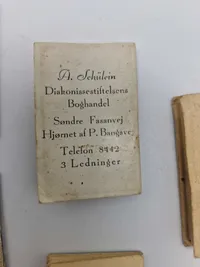 A. Schülein
Diakonissestiftelsens
Boghandel
Søndre Fasanvej
Hjørnet af P. Bangsvej
Telefon 8442
3 Ledninger